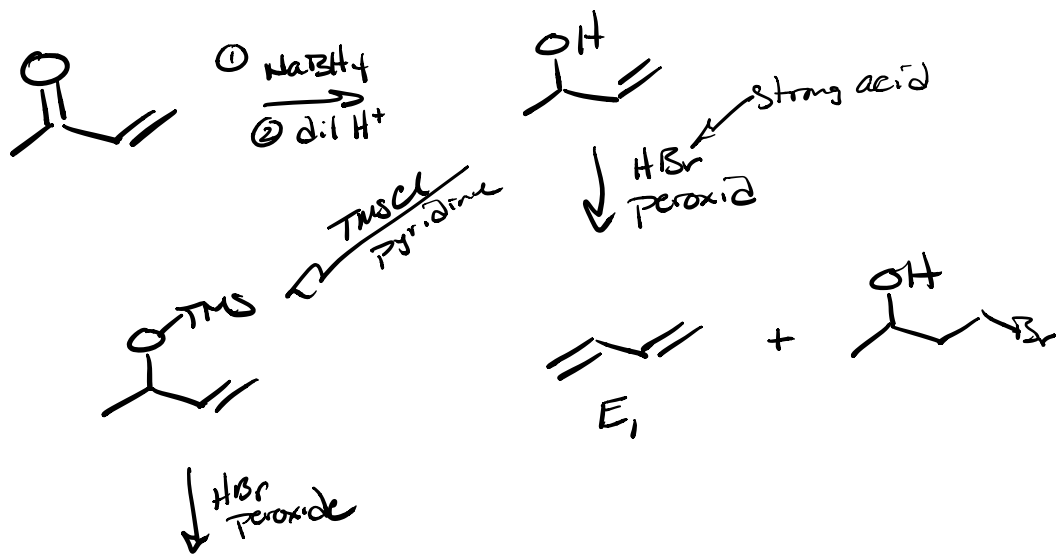 O
① NaBH4
② dil H+
OH
strong acid
HBr
peroxid
TMSCl
pyridine
O-TMS
E1
+
OH
Br
HBr
peroxide